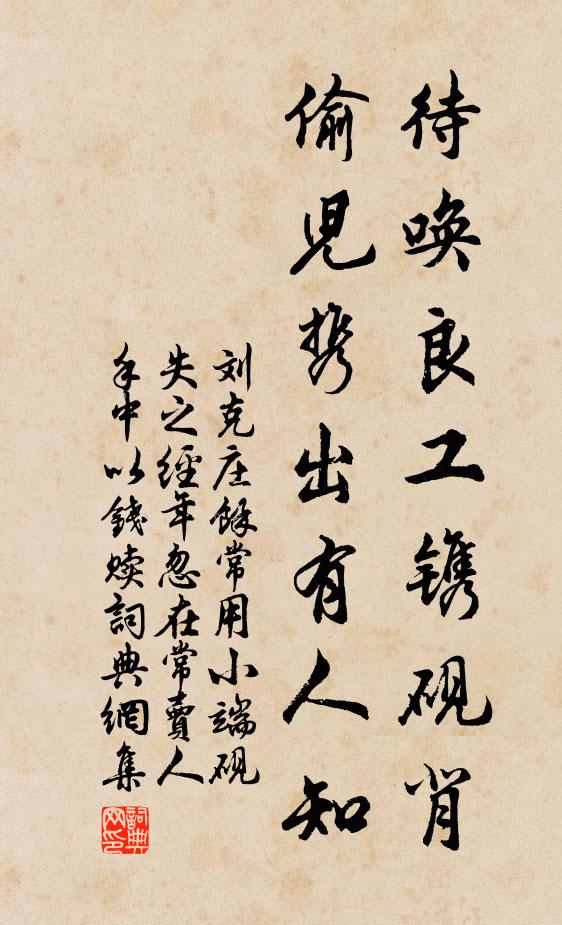 待唤良工镌砚背
偷兒携出有人知
刘克庄餘常用小端砚
失之經年忽在常賣人
手中以錢赎詞典網集
詞典
网印